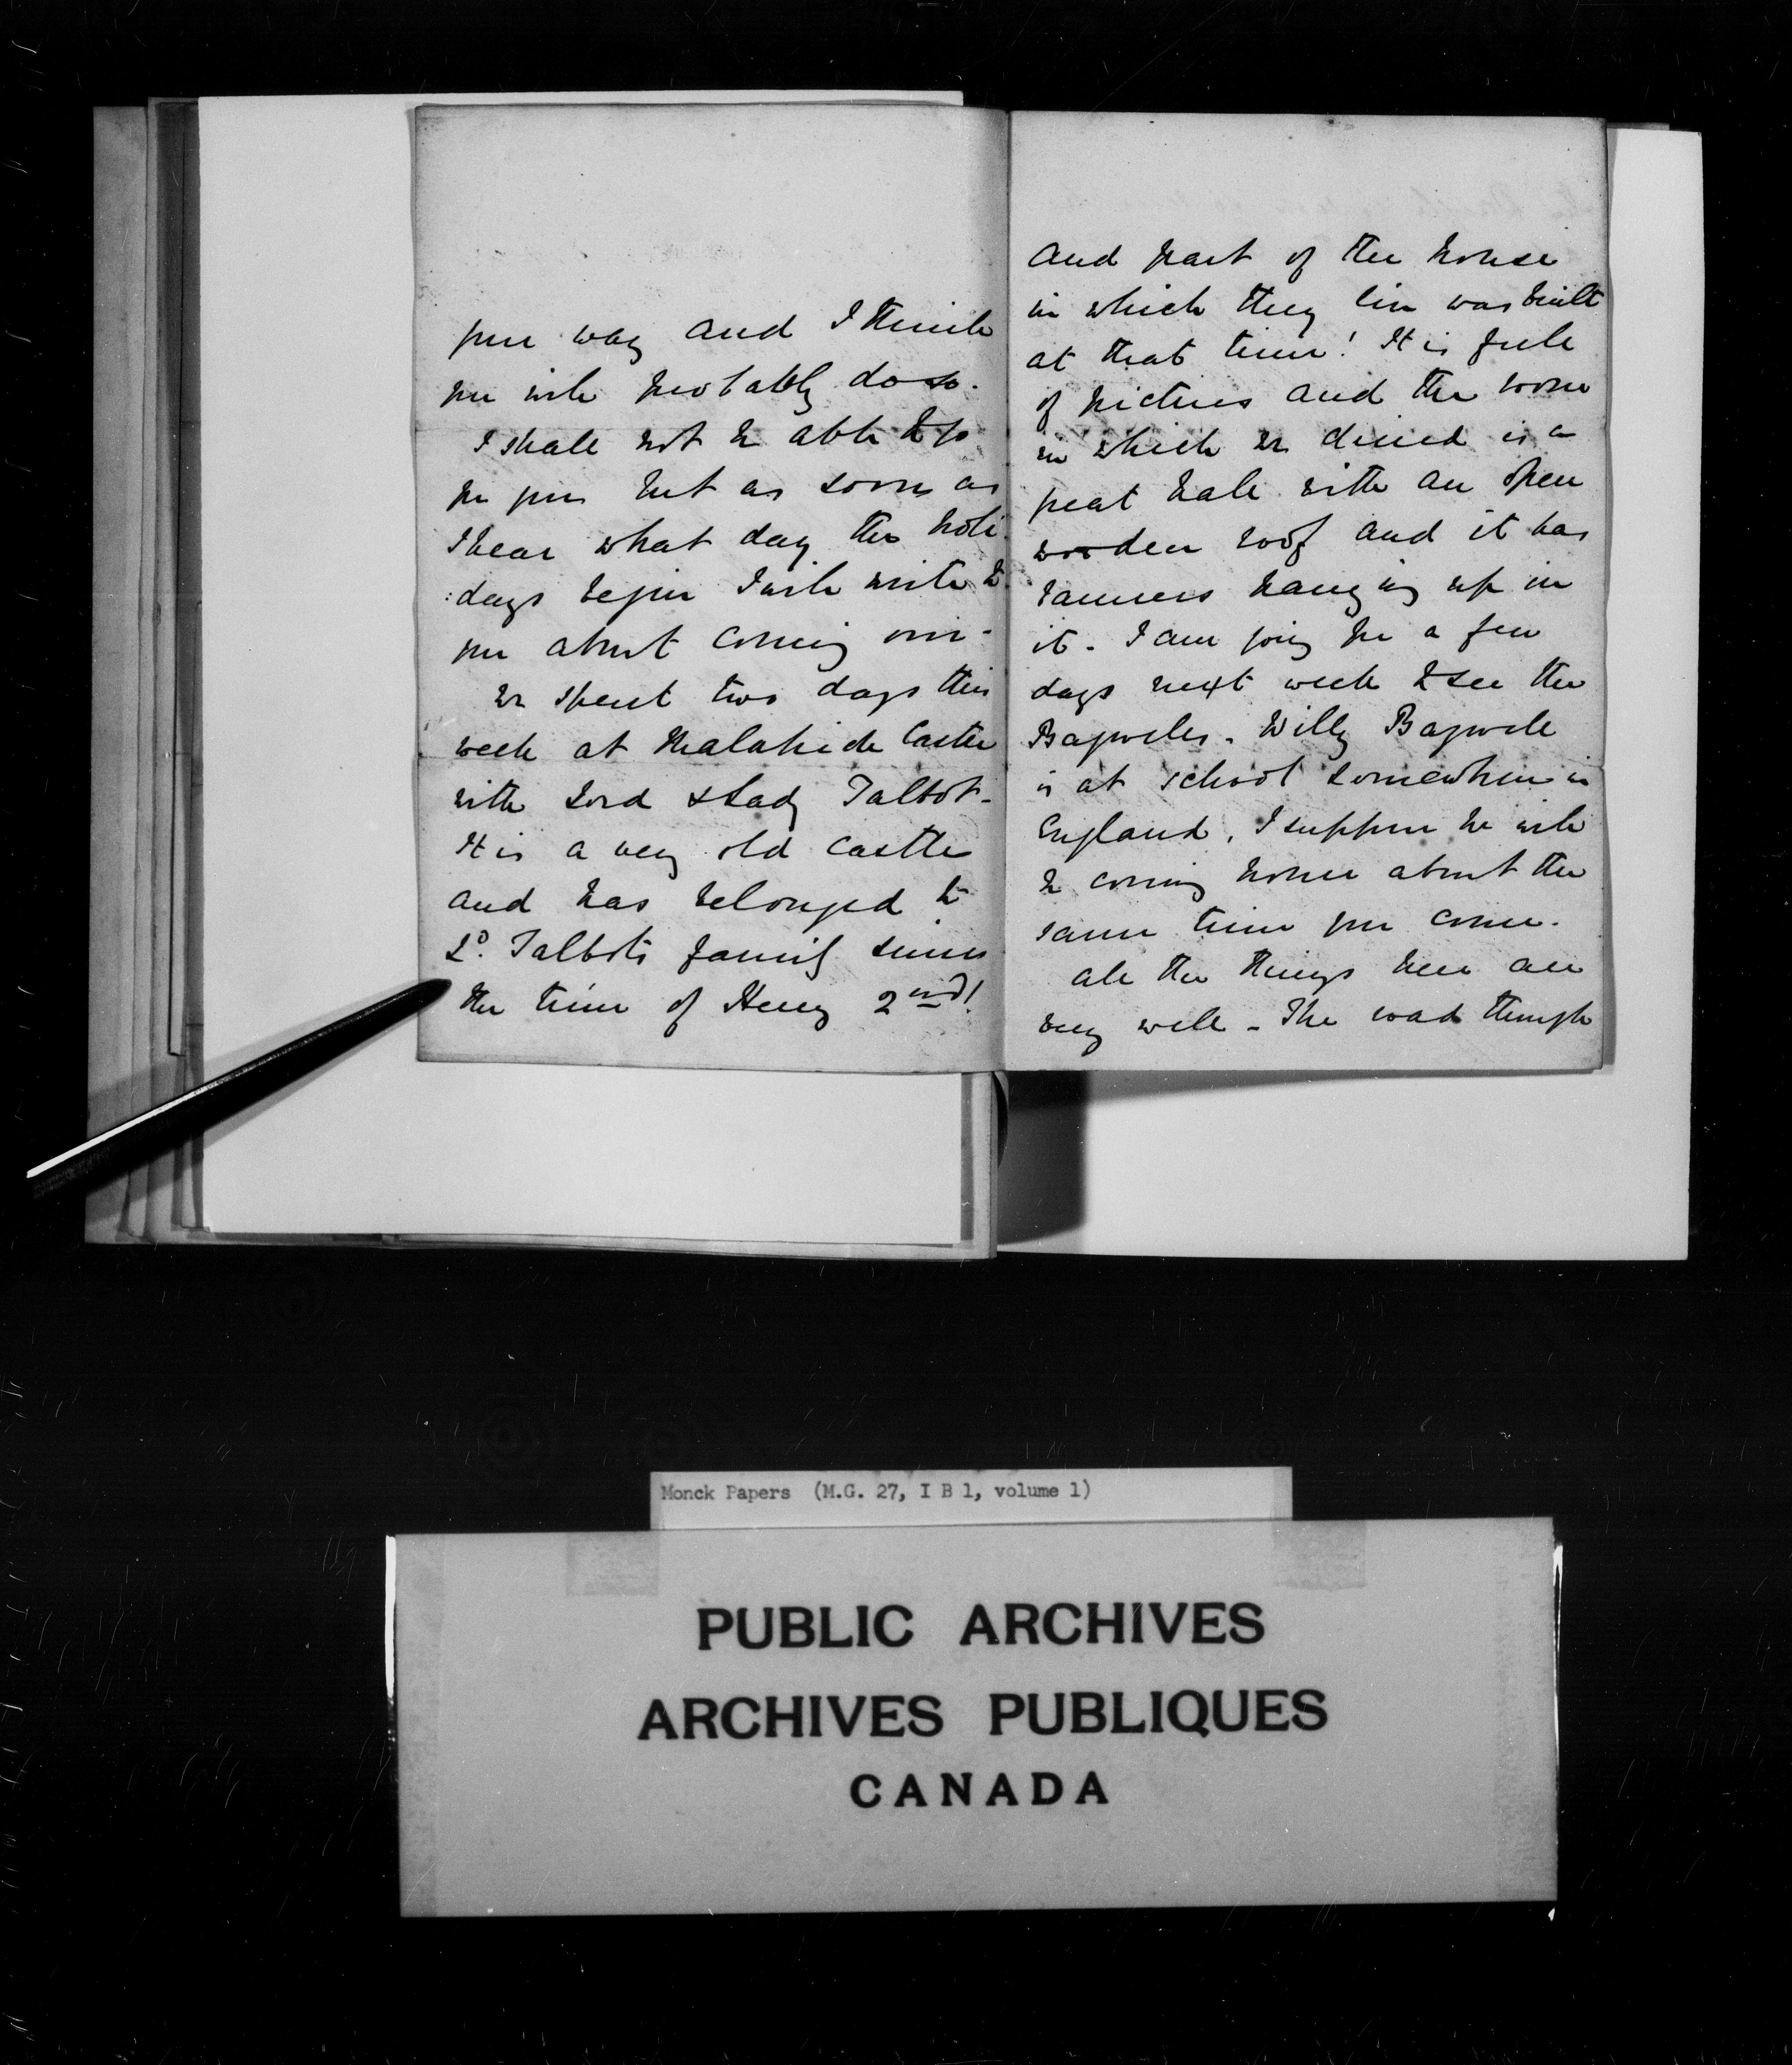 your way and I think
you will probably do so.
I shall not be able to go
for you but as soon as
I hear what day the holi
:days begin I will write to
you about coming over.
We spent two days this
week at Malahide Castle
with Lord & Lady Talbot.
It is a very old castle
and has belonged to
Ld. Talbots family since
the time of Henry 2nd!
and part of the house
in which they live was built
at that time! It is full
of pictures and the room
in which we dined is a
great hall with an open
wooden roof and it has
banners hanging up in
it. I am going for a few
days next week to see the
Bagwells. Willy Bagwell
is at school somewhere in
England, I suppose he will
be coming home about the
same time you come.
All the things here are
very well - The road through
Monck Papers (M.G. 27, I B 1, volume 1)
PUBLIC ARCHIVES
ARCHIVES PUBLIQUES
CANADA